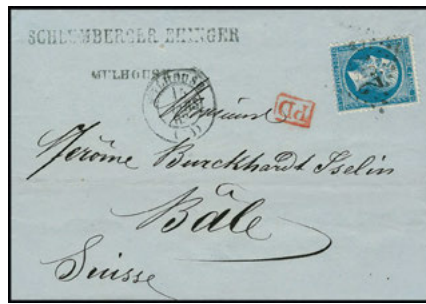 SCHLUMBERGER EHINGER
MULHOUSE
MULHOUSE
PD
Monsieur
Jérôme Burckhardt Iselin
Bâle
Suisse